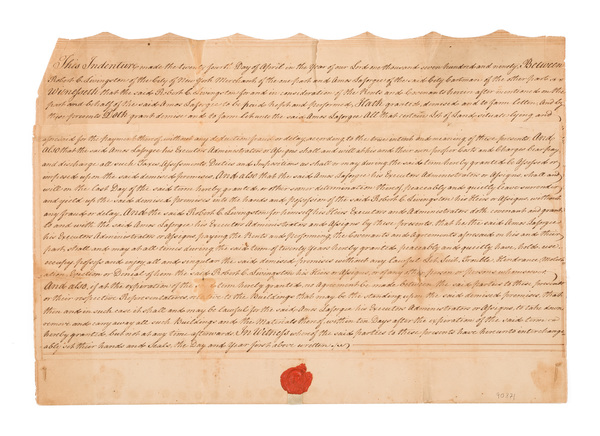 This Indenture made the twenty fourth Day of April in the Year of our Lord one thousand seven hundred and ninety Between
Robert C. Livingston of the City of New York Merchant of the one part and Amos Laforge of the said City Cartman of the other part
Witnesseth that the said Robert C. Livingston for and in consideration of the Rents and Covenants herein after mentioned on the
part and behalf of the said Amos Laforge to be paid kept and performed, Hath granted demised and to farm letten And by
these presents Doth grant demise and to farm let unto the said Amos Laforge All that certain Lot of Land situate lying and
aforesaid for the payment thereof without any deduction fraud or delay, according to the true intent and meaning of these presents. And
Also that the said Amos Laforge his Executors Administrators or Assigns shall and will at his and their own proper Costs and Charges bear pay
and discharge all such Taxes Assessments Duties and Impositions as shall or may during the said term hereby granted be Assessed or
imposed upon the said demised premises. And also that the said Amos Laforge his Executors Administrators or Assigns, shall and
will on the last Day of the said term hereby granted or other sooner determination thereof peaceably and quietly leave surrender
and yield up the said demised premises into the hands and possession of the said Robert C. Livingston his Heirs or Assigns, without
any fraud or delay. And the said Robert C. Livingston for himself his Heirs Executors and Administrators doth covenant and grant
to and with the said Amos Laforge his Executors Administrators and Assigns by these presents that he the said Amos Laforge
his Executors Administrators or Assigns, paying the Rents and performing the Covenants and Agreements aforesaid on his and their
part, shall and may at all times during the said term of Years hereby granted, peaceably and quietly have, hold, use,
occupy possess and enjoy all and singular the said demised premises without any Lawful Let Suit Trouble Hindrance
Eviction or Denial of him the said Robert C. Livingston his Heirs or Assigns, or of any other person or persons whomsoever
And also, if at the expiration of the term hereby granted no Agreement be made between the said parties to these presents
or their respective Representatives, relative to the Buildings that may be then standing upon the said demised premises, that
then and in such case it shall and may be lawful for the said Amos Laforge his Executors Administrators or Assigns, to take down
remove and carry away all such Buildings and the Materials thereof within ten Days after the expiration of the said term
hereby granted, but not at any time afterwards. In Witness whereof the said parties to these presents have hereunto interchange-
ably set their hands and Seals, the Day and Year first above written.